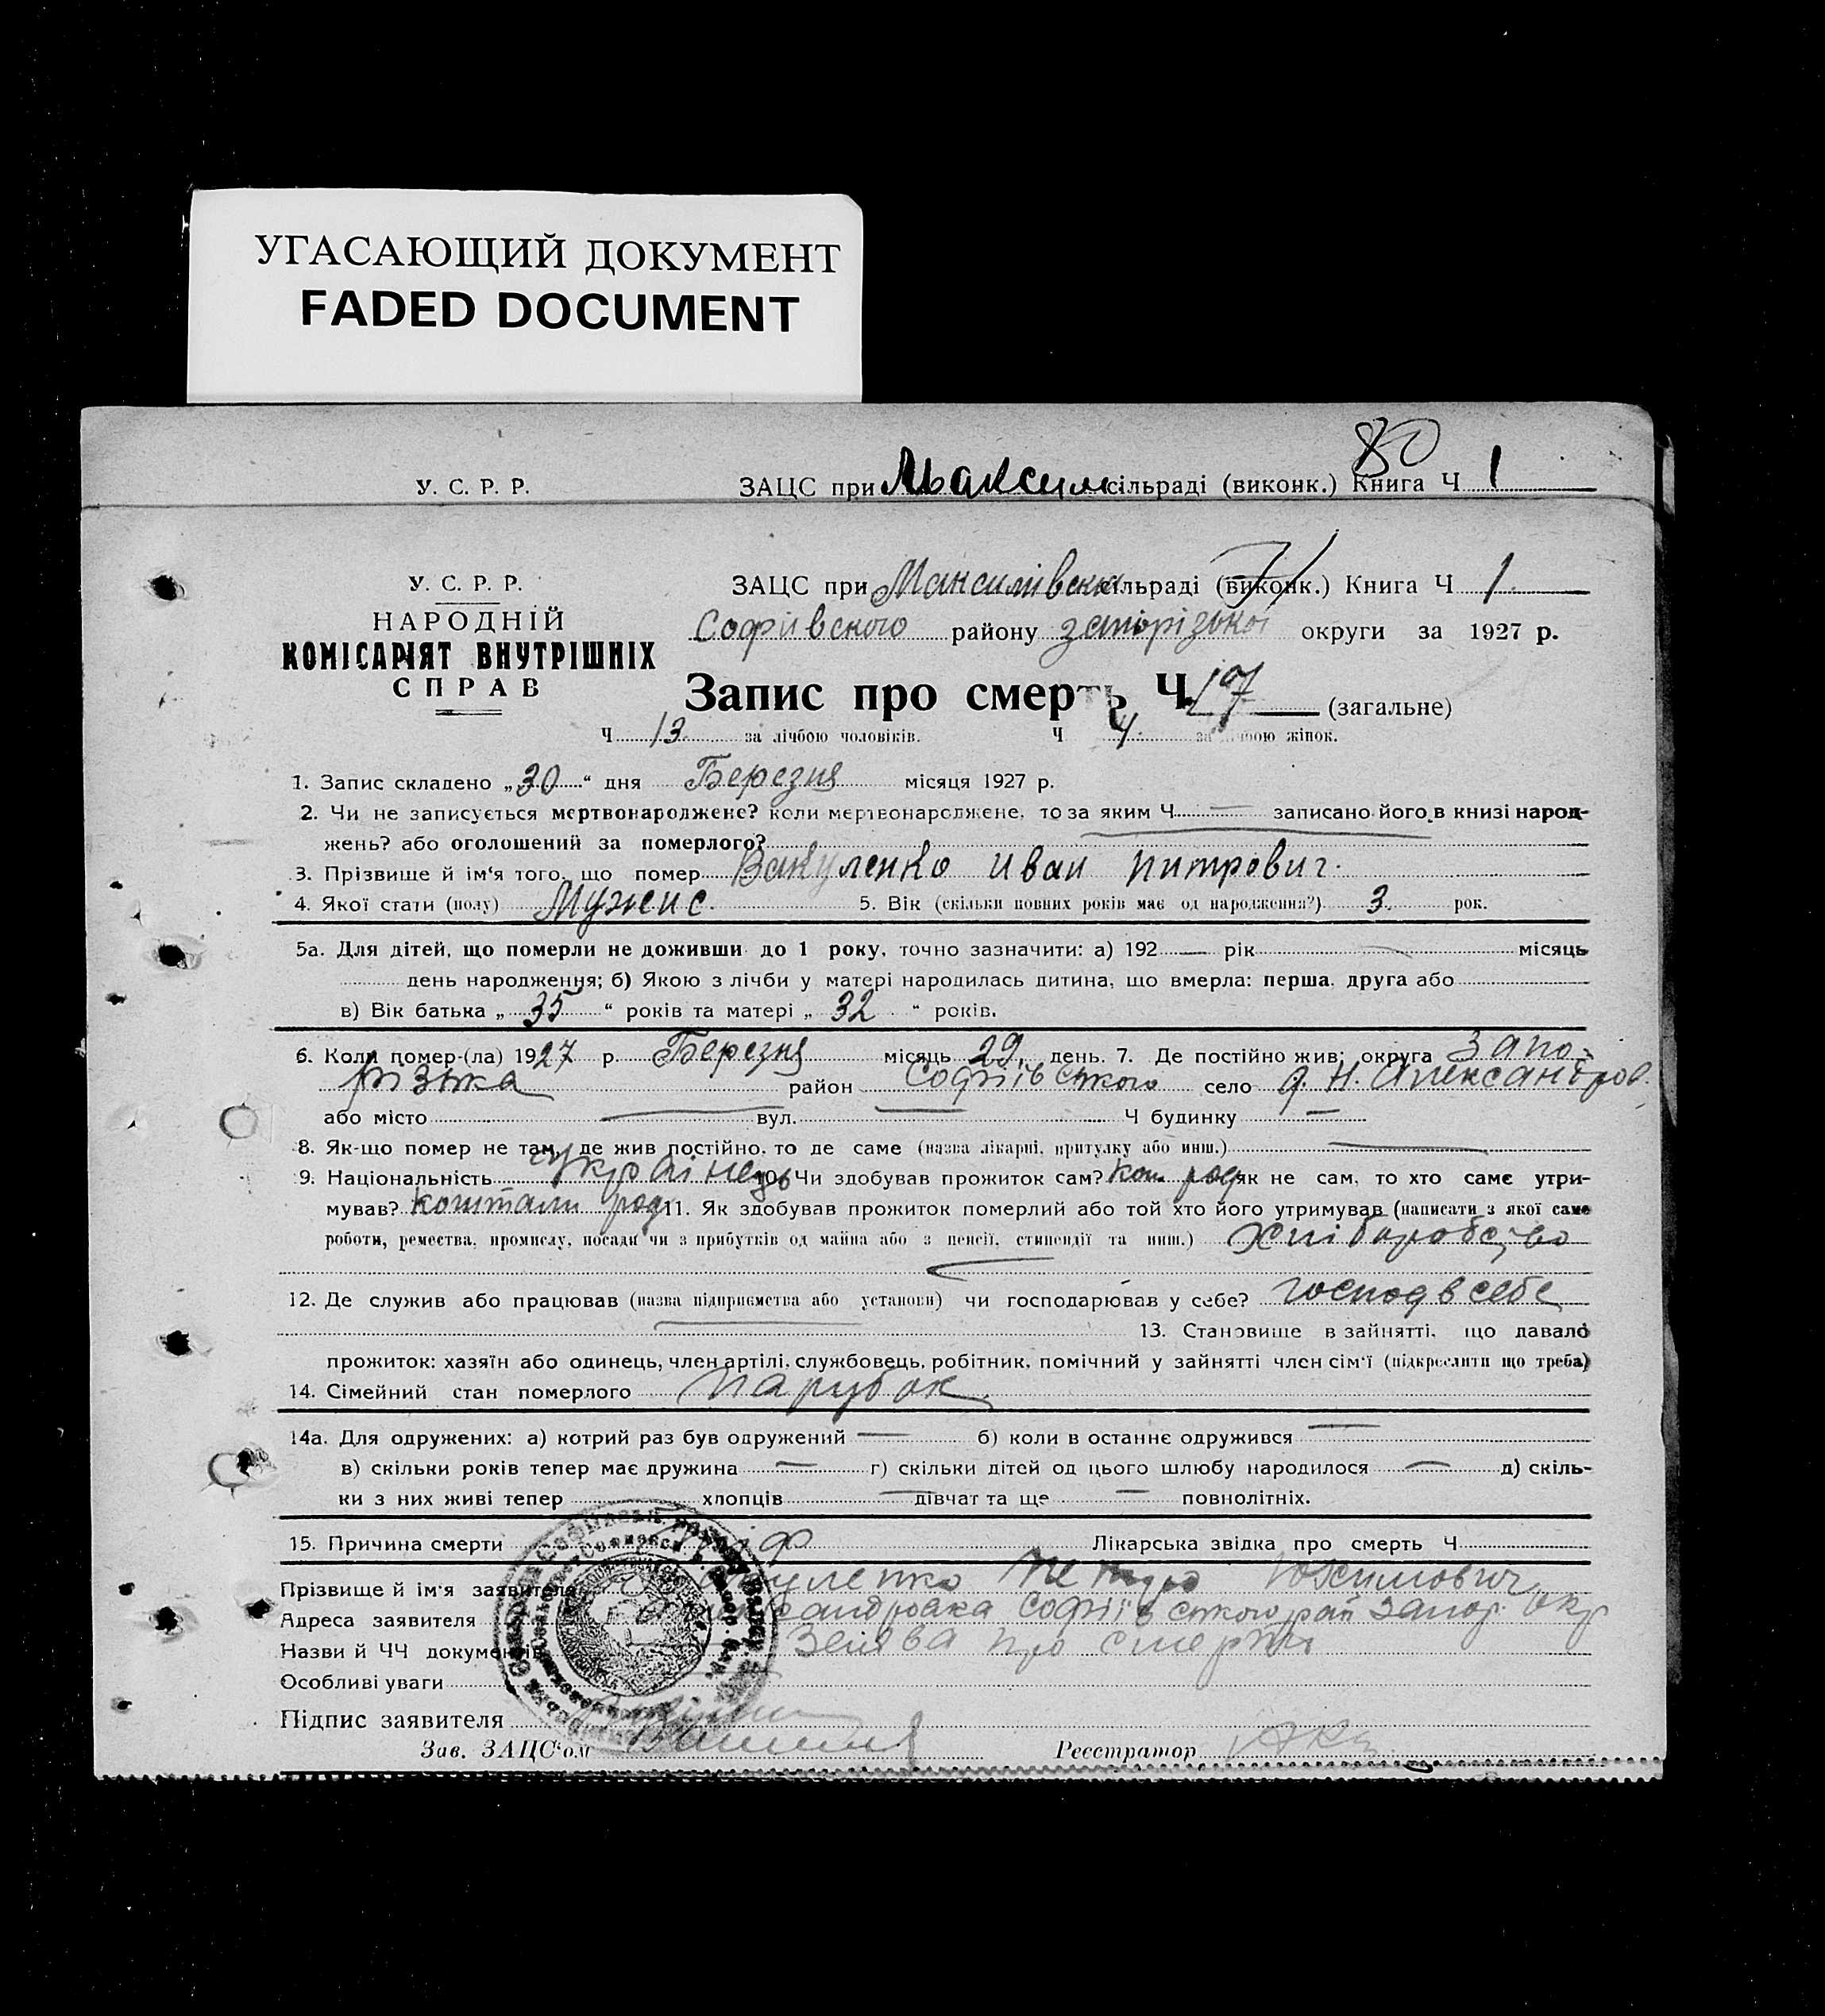 УГАСАЮЩИЙ ДОКУМЕНТ
FADED DOCUMENT
80
У. С. Р. Р. ЗАЦС при Максим сільраді (виконк.) Книга Ч 1
У. С. Р. Р. ЗАЦС при Максимівськ сільраді (виконк.) Книга Ч 1.
НАРОДНІЙ Софіївского району запорізької округи за 1927 р.
КОМІСАРІЯТ ВНУТРІШНІХ
СПРАВ Запис про смерть Ч. 17 (загальне)
Ч 13 за лічбою чоловіків. Ч 4 за лічбою жінок.
1. Запис складено „30“ дня Березня місяця 1927 р.
2. Чи не записується мертвонароджене? коли мертвонароджене, то за яким Ч. — записано його в книзі народ-
жень? або оголошений за померлого?
3. Прізвище й ім'я того, що помер Вакуленко иван питрович.
4. Якої стати (полу) Мужис. 5. Вік (скільки повних років має од народження?) 3. рок.
5а. Для дітей, що померли не доживши до 1 року, точно зазначити: а) 192 — рік місяць
день народження; б) Якою з лічби у матері народилась дитина, що вмерла: перша, друга або
в) Вік батька „ 35 “ років та матері „ 32 “ років.
6. Коли помер-(ла) 1927 р. Березня місяць 29. день. 7. Де постійно жив: округа Запо-
різька район Софіївського село д. Н. Александров.
або місто — вул. — Ч будинку —
8. Як-що помер не там, де жив постійно, то де саме (назва лікарні, притулку або инш.) —
9. Національність українець 10. Чи здобував прожиток сам? кош. род як не сам, то хто саме утри-
мував? коштали род 11. Як здобував прожиток померлий або той хто його утримував (написати з якої саме
роботи, ремества, промислу, посади чи з прибутків од майна або з пенсії, стипендії та инш.) хліборобство
12. Де служив або працював (назва підприємства або установи) чи господарював у себе? господ в себе
13. Становище в зайнятті, що давало
прожиток: хазяїн або одинець, член артілі, службовець, робітник, помічний у зайнятті член сім'ї (підкреслити що треба)
14. Сімейний стан померлого парубок.
14а. Для одружених: а) котрий раз був одружений — б) коли в останнє одружився —
в) скільки років тепер має дружина — г) скільки дітей од цього шлюбу народилося — д) скіль-
ки з них живі тепер хлопців — дівчат та ще — повнолітніх.
15. Причина смерти Лікарська звідка про смерть Ч
Прізвище й ім'я заявителя Вакуленко Петро Юхимович
Адреса заявителя Александровка Софіївського рай Запор. Окр
Назви й ЧЧ документів Зеява про смерть
Особливі уваги
Підпис заявителя
Зав. ЗАЦС'ом Реєстратор